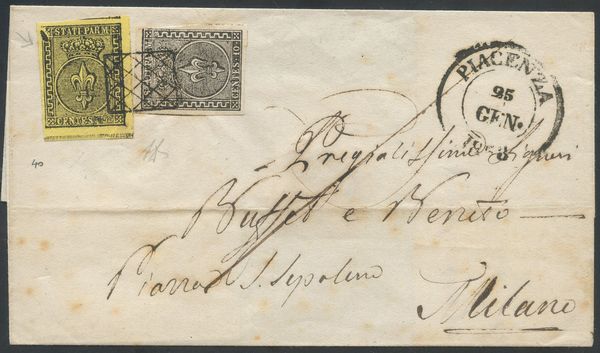 STATI PARM.
CENTES.
STATI PARM.
CENTES. 10
PIACENZA
25
GEN.
40
Pregiatissimi Signori
Buffet e Beruto
Piazza S. Sepolcro
Milano